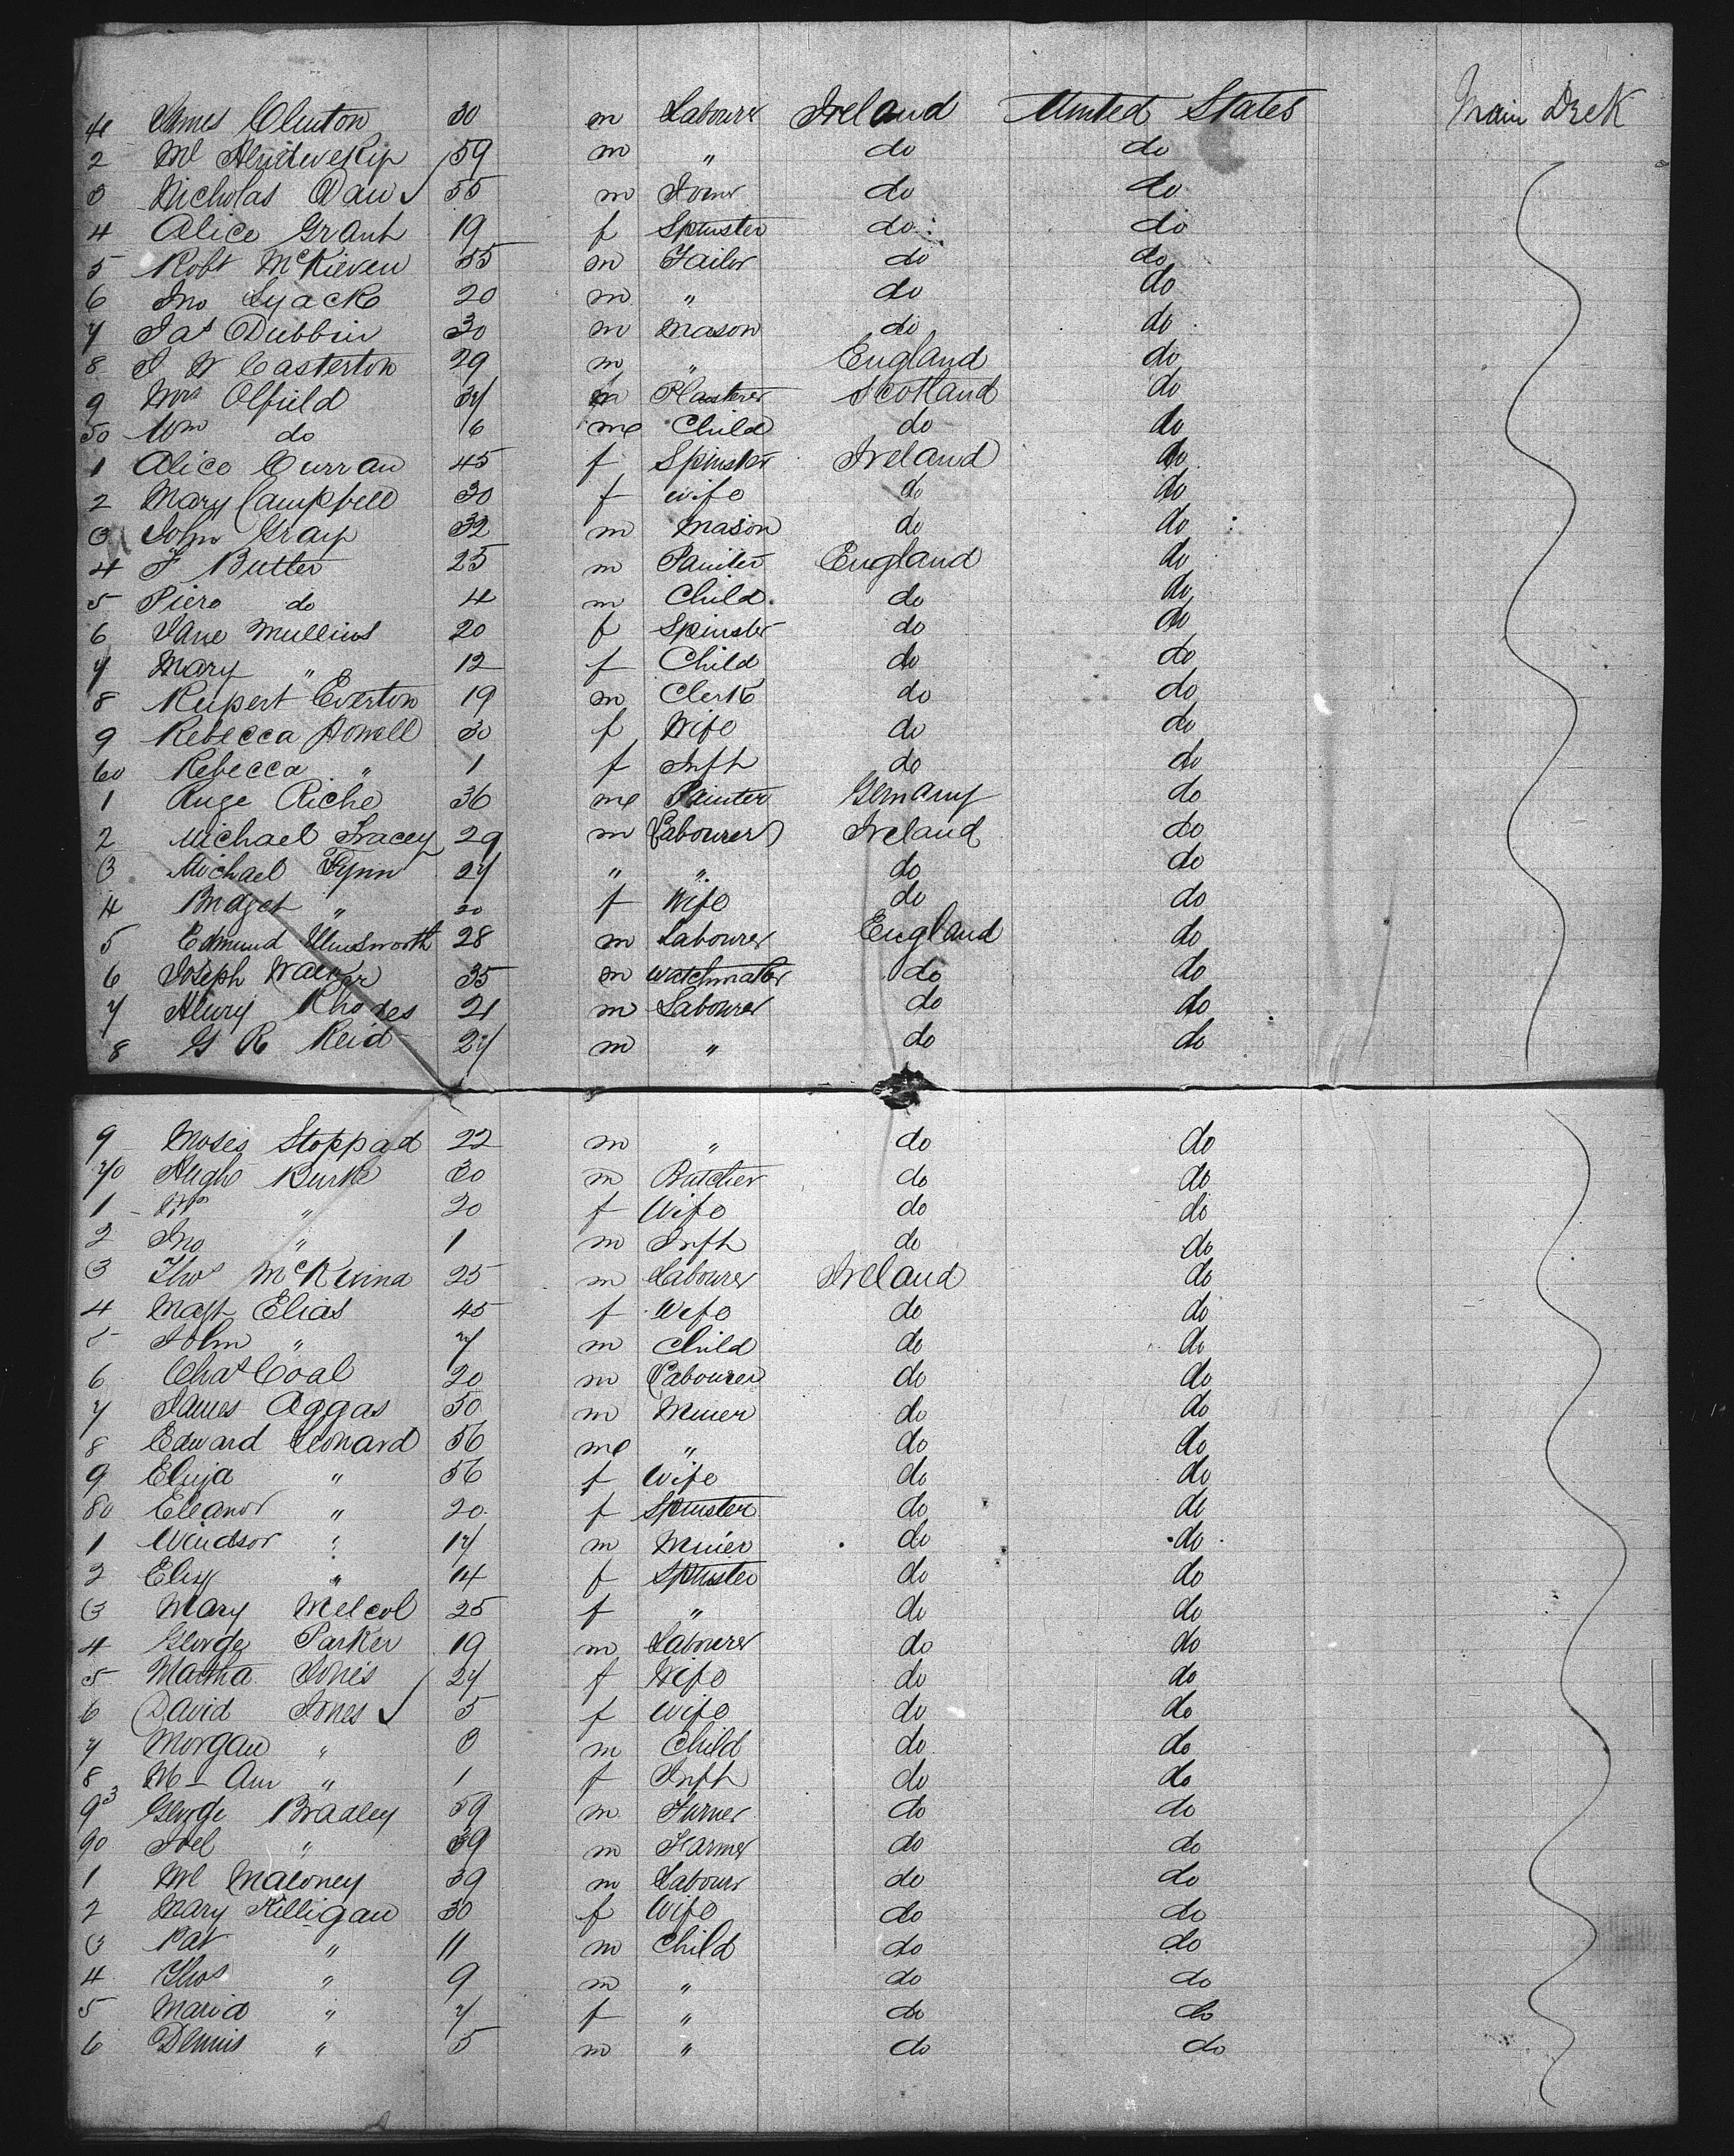 41 James Clinton 30 m Labourr Ireland United States Main Deck
2 Ml 59 m " do do
3 Nicholas Daw 55 m Joiner do do
4 Alice Grant 19 f Spinster do do
5 Robt McKieven 35 m Tailor do do
6 Jno Lyack 20 m " do do
7 Jas Dubbin 30 m Mason do do
8 J W Casterton 29 m " England do
9 Mrs Olfield 34 m Plasterer Scotland do
50 Wm do 6 m Child do do
1 Alice Curran 45 f Spinster Ireland do
2 Mary Campbell 30 f wife do do
3 John Gray 32 m Mason do do
4 F Butler 25 m Painter England do
5 Piero do 4 m Child do do
6 Jane Mullins 20 f Spinster do do
7 Mary " 12 f Child do do
8 Rupert Everton 19 m Clerk do do
9 Rebecca Powell 30 f Wife do do
60 Rebecca " 1 f Inft do do
1 Ruge Riche 36 m Painter Germany do
2 Michael Tracey 29 m Labourer Ireland do
3 Michael Flynn 27 " " do do
4 Bridget " 20 f Wife do do
5 Edmund 28 m Labourer England do
6 Joseph Walker 35 m Watchmaker do do
7 Henry Rhodes 21 m Labourer do do
8 G R Reid 27 m " do do
9 Moses Stoppad 22 m " do do
70 Hugh Burke 30 m Butcher do do
1 Mrs " 20 f Wife do do
2 Jno " 1 m Inft do do
3 Thos McKenna 25 m Labourer Ireland do
4 Magt Elias 45 f Wife do do
5 John " 7 m Child do do
6 Chas Coal 20 m Labourer do do
7 James Aggas 50 m Miner do do
8 Edward Leonard 56 m " do do
9 Eliza " 56 f Wife do do
80 Eleanor " 20 f Spinster do do
1 Windsor " 17 m Miner do do
2 Eliz " 14 f Spinster do do
3 Mary Melcol 25 f " do do
4 George Parker 19 m Labourer do do
5 Martha Jones 27 f Wife do do
6 David Jones 5 f Wife do do
7 Morgan " 3 m Child do do
8 M Ann " 1 f Inft do do
9 George Bradley 59 m Turner do do
90 Joel " 39 m Farmer do do
1 Ml Maloney 39 m Labourr do do
2 Mary Killigan 30 f Wife do do
3 Pat " 11 m Child do do
4 Thos " 9 m " do do
5 Maria " 7 f " do do
6 Dennis " 5 m " do do